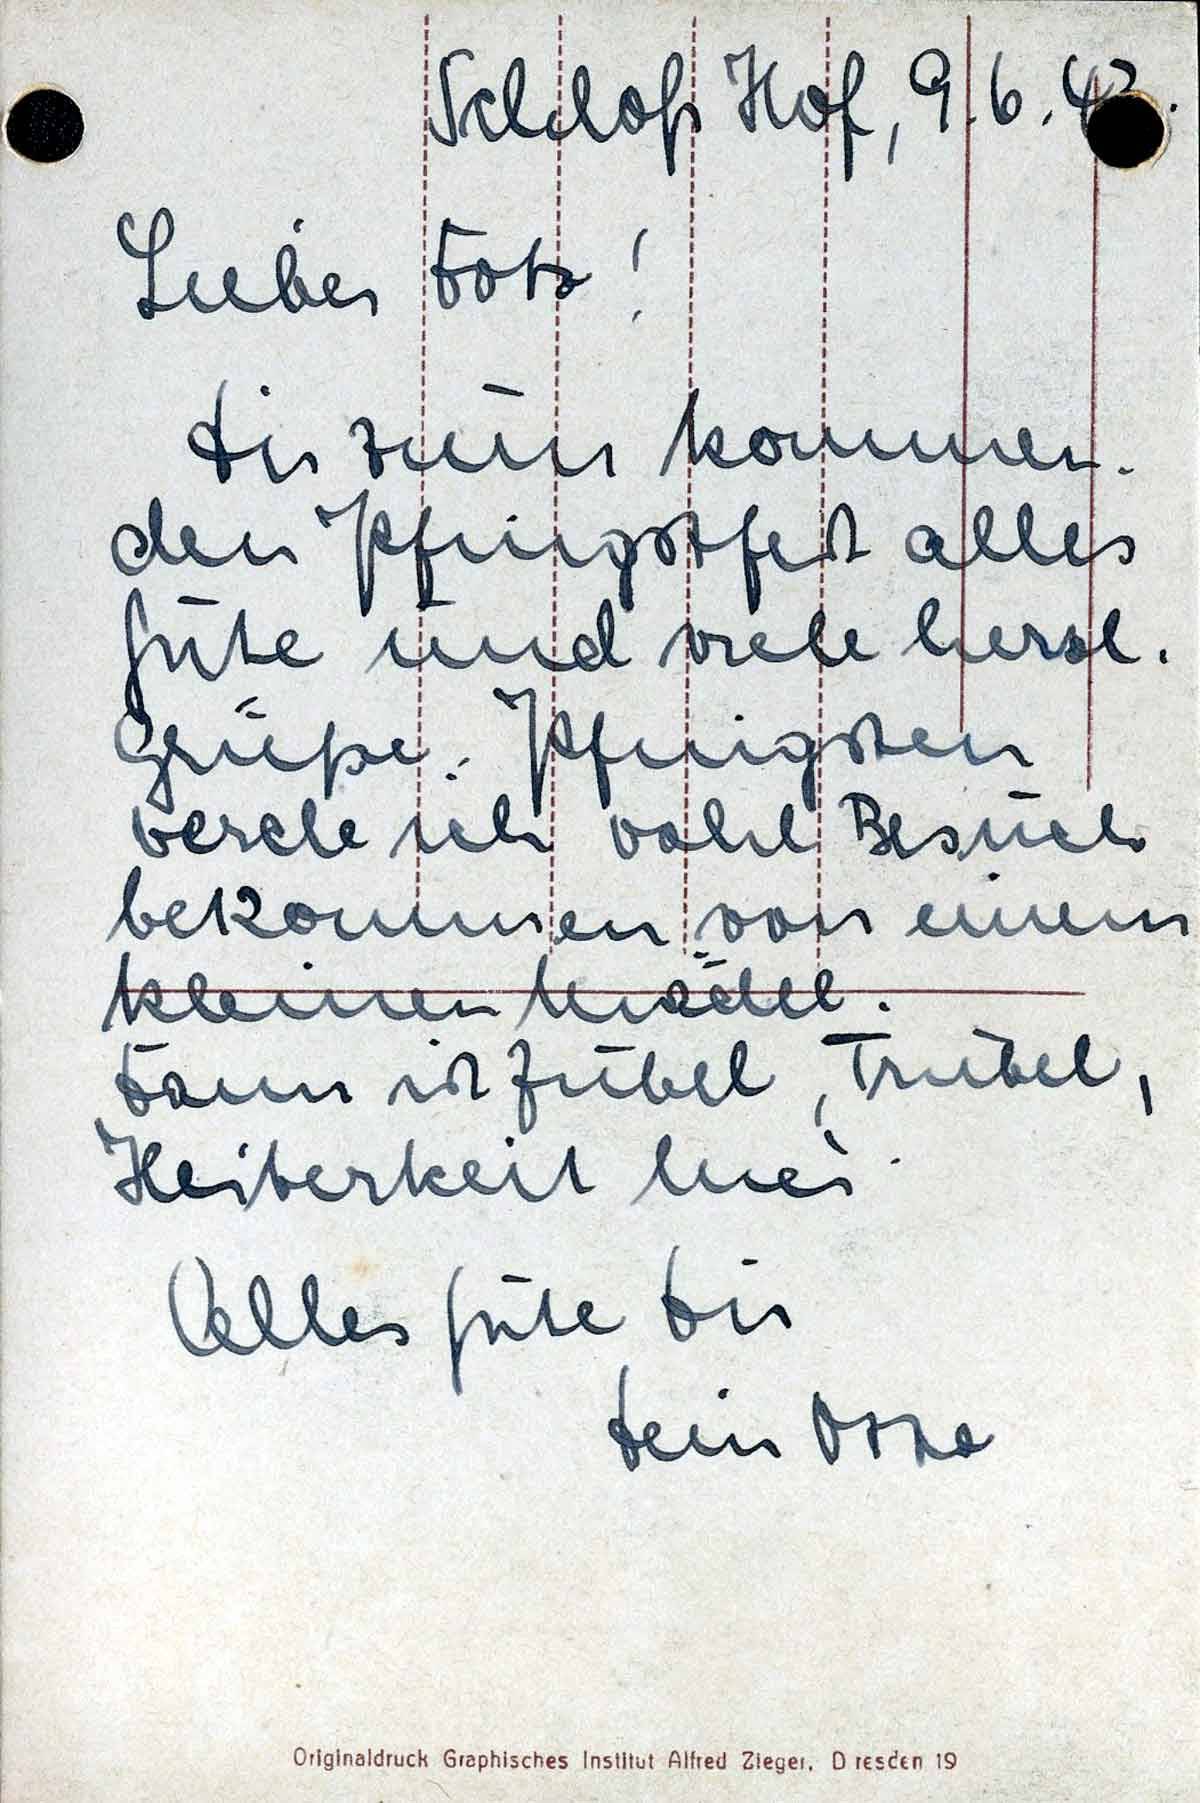 Schloß Hof, 9.6.43.
Lieber
Dir zum kommen-
den Pfingstfest alles
Gute und viele herzl.
Grüße. Pfingsten
werde ich wohl Besuch
bekommen von einem
kleinen Mädel.
Dann ist Jubel, Trubel,
Heiterkeit hier.
Alles Gute Dir
Dein
Originaldruck Graphisches Institut Alfred Zieger, Dresden 19